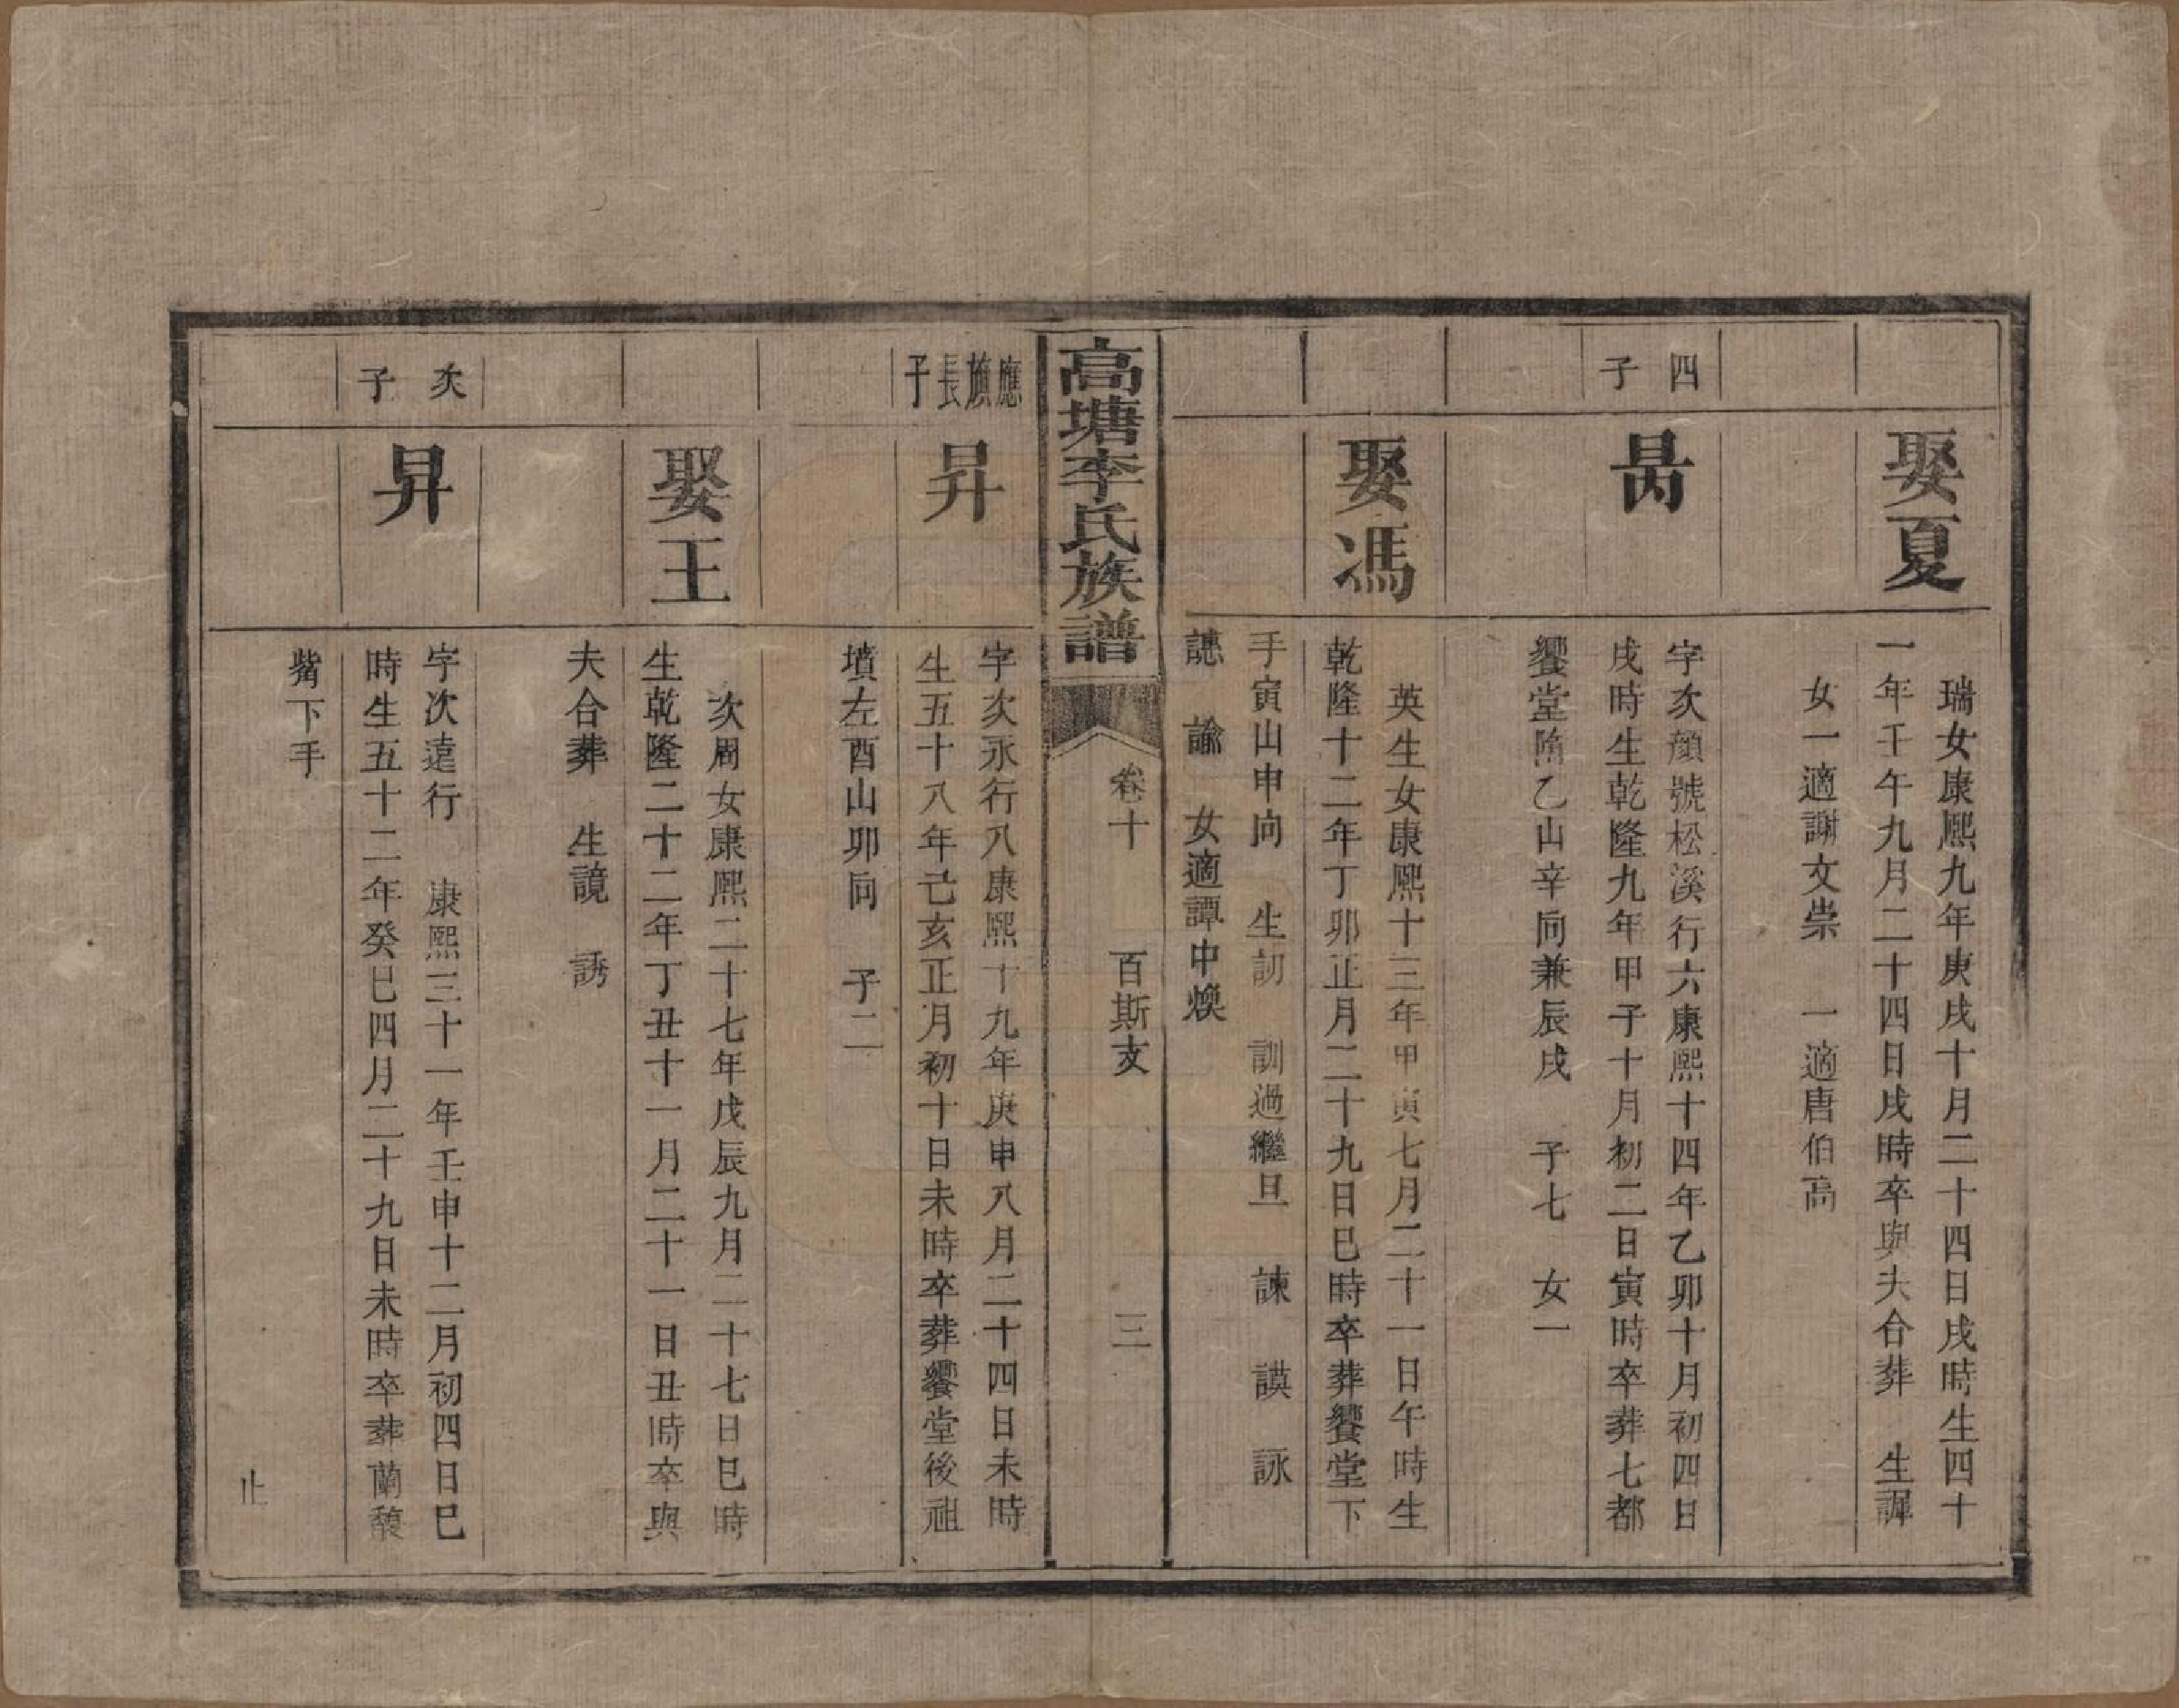 娶夏
瑞女康熙九年庚戌十月二十四日戌時生四十
一年壬午九月二十四日戌時卒與夫合葬 生諢
女一適謝文崇 一適唐伯高
四子
昺
字次顔號松溪行六康熙十四年乙卯十月初四日
戌時生乾隆九年甲子十月初二日寅時卒葬七都
饗堂隋乙山辛向兼辰戌 子七 女一
娶馮
英生女康熙十三年甲寅七月二十一日午時生
乾隆十二年丁卯正月二十九日巳時卒葬饗堂下
手寅山申向 生訒 訓過繼旦 諫 謨 詠
諰 諭 女適譚中煥
高塘李氏族譜
卷十 百斯支 三
應旟長子
昇
字次永行八康熙十九年庚申八月二十四日未時
生五十八年己亥正月初十日未時卒葬饗堂後祖
墳左酉山卯向 子二
娶王
次周女康熙二十七年戊辰九月二十七日巳時
生乾隆二十二年丁丑十一月二十一日丑時卒與
夫合葬 生謮 誘
次子
昇
字次遠行 康熙三十一年壬申十二月初四日巳
時生五十二年癸巳四月二十九日未時卒葬蘭馥
觜下手
止